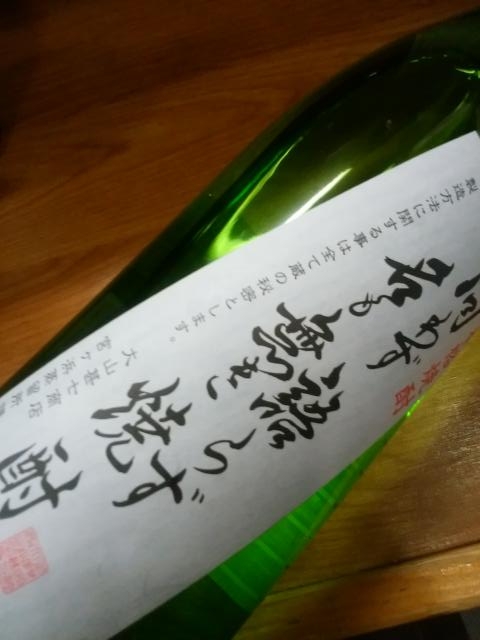 格焼酎
問わず語らず
名も無き焼酎
製造方法に関する事は全て蔵の秘密とします。
大山甚七商店
宮ヶ浜蒸留所